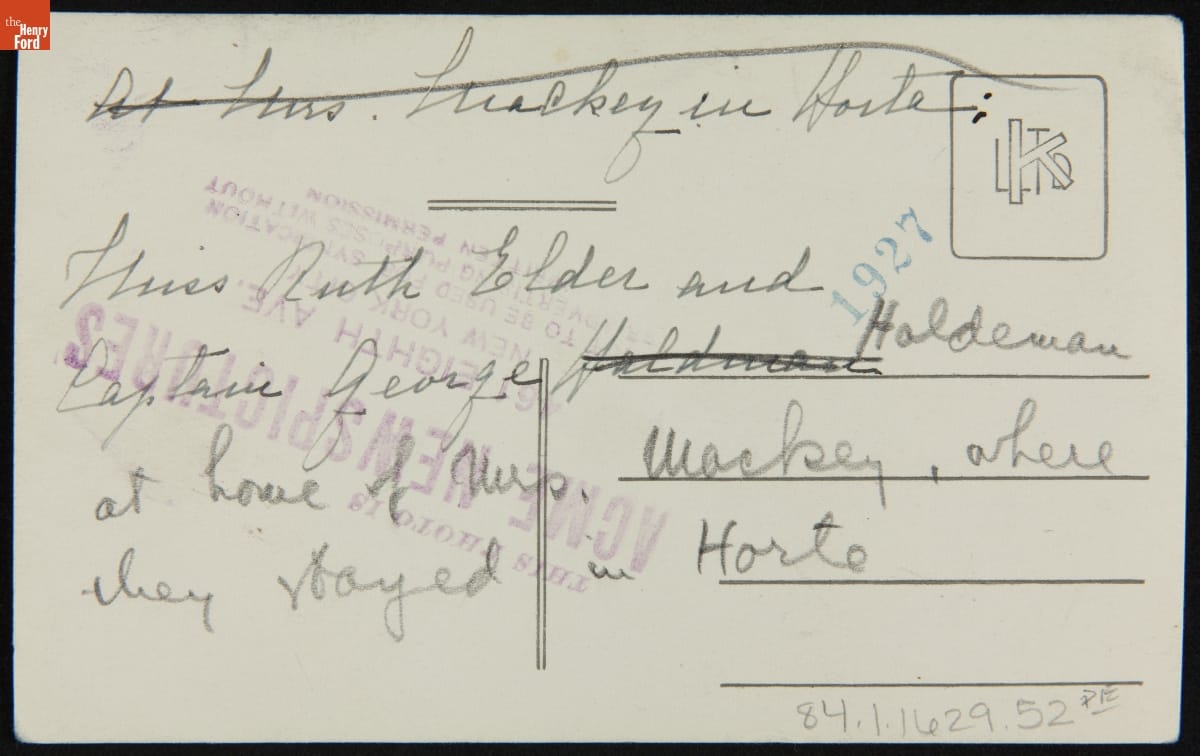 the
Henry
Ford
At Mrs. Mackey in Horta;
1927
Miss Ruth Elder and
Captain George Haldman Haldeman
at home of Mrs. Mackey, where
they stayed in Horta
THIS PHOTO IS
ACME NEWSPICTURES
461 EIGHTH AVE.
NEW YORK CITY
TO BE USED FOR SYNDICATION
ADVERTISING PURPOSES WITHOUT
WRITTEN PERMISSION
84.1.1629.52 PE